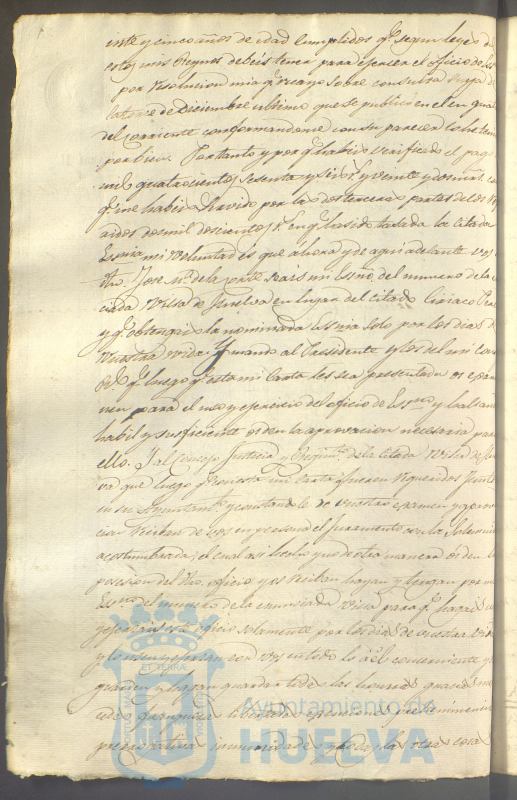 inte y cinco años de edad Cumplidos q.e segun leyes de
estos mis Reynos debeis tener para exercer el oficio de Ess
por Resolucion mia q.e recayo sobre consulta suya de
catorce de Diciembre ultimo que se publicó en el en
del corriente conformandome con su parecer lo he ten
por bien. Por tanto y por q.e habeis verificado el pago
mil quatrocientos sesenta y seis r.s y veinte y dos mrs
q.e me habeis servido por las dos terceras partes de los
de dos mil doscientos r.s en q.e ha sido tasada la citada
Essnia mi voluntad es que ahora y de aqui adelante vos
dho. Jose M.a de la Corte seais mi Essno. del numero de la
ciada Villa de Huelva en lugar del citado Ciriaco
y q.e obtengais la nominada Essnia solo por los dias de
vuestra vida. Y mando al Presidente y los del mi Cons
q.e luego q.e esta mi Carta les sea presentada os exa
nen para el uso y exercicio del oficio de Essno y hallan
habil y suficiente os den la aprovacion necesaria para
ello. Y al Concejo Justicia y Regim.to de la citada Villa de Huel
va que luego q.e con esta mi carta fuesen requeridos Juntos
en su Ayuntam.to y constandoles de vuestro examen y aprova
cion reciban de vos en persona el Juramento con la Solemnid
acostumbrada, el cual asi hecho y no de otra manera os den la
posesion del dho. oficio y os reciban hayan y tengan por mi
Essno del numero de la enunciada Villa para q.e hagais
y exerzais este oficio solamente por los dias de vuestra vida
y lo usen y exerzan con vos en todo lo á él concerniente y
guarden y hagan guardar todas las honras gracias mer
cedes franquicias libertades exenciones preheminencias
prerrogativas inmunidades y todas las otras cosas
ET TERRÆ
Ayuntamiento de
HUELVA